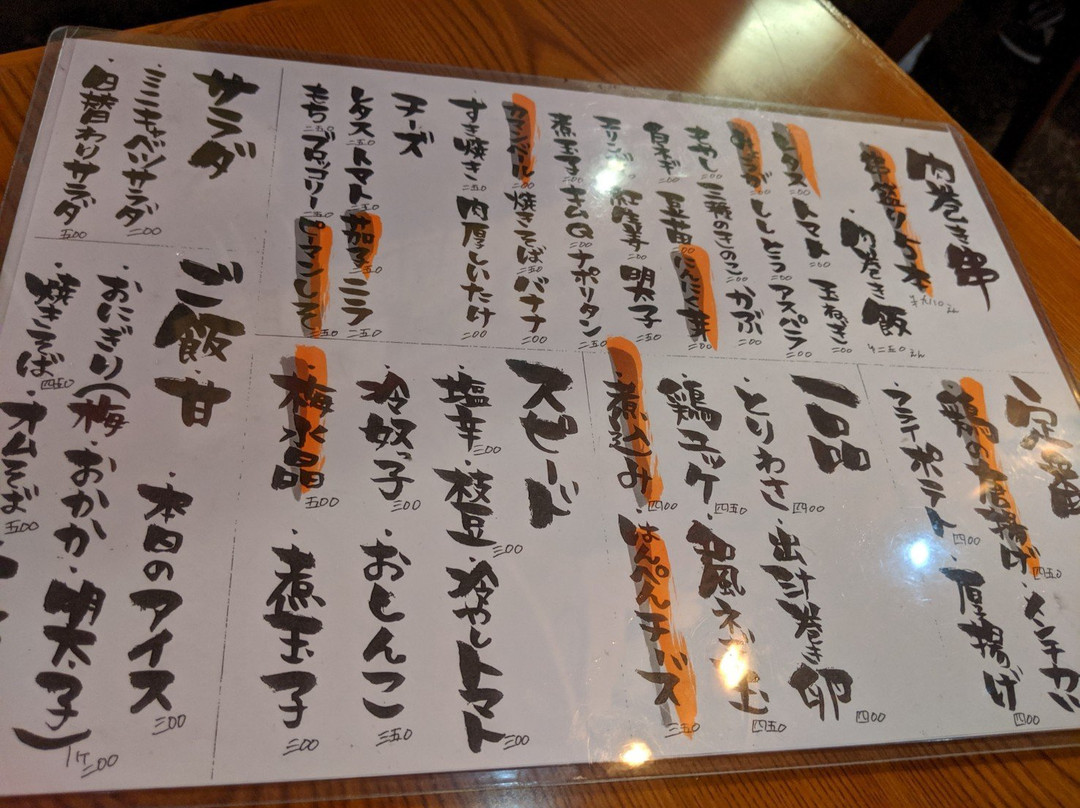 肉巻き串
串盛り5本
肉巻き飯
レタス 二五〇 トマト 二五〇 玉ねぎ 二〇〇
みょうが ししとう 二〇〇 アスパラ 二〇〇
二〇〇 三種のきのこ 二〇〇 かぶ 二〇〇
二〇〇 にんにく芽 二〇〇
エリンギ 紅生姜 二〇〇 明太子
煮玉子 二〇〇 ナポリタン 二五〇
カマンベール 二〇〇 焼きそば 二五〇 バナナ 二〇〇
すき焼き 二五〇 肉厚しいたけ 二〇〇
チーズ
レタス 二五〇 トマト 二五〇 茄子 二五〇 ニラ 二五〇
もち 二五〇 ブロッコリー 二五〇 ピーマンしそ 二五〇
サラダ
・ミニキャベツサラダ 二〇〇
・日替わりサラダ 五〇〇
定番
・鶏の唐揚げ 四五〇 ・メンチカツ
・フライドポテト 四〇〇 ・厚揚げ 四〇〇
一品
・とりわさ 四〇〇 ・出汁巻き卵 四〇〇
・鶏ユッケ 四五〇
・煮込み 四〇〇 ・はんぺんチーズ 三五〇
スピード
・塩辛 三〇〇 ・枝豆 三〇〇 ・冷やしトマト 三〇〇
・冷奴っ子 三〇〇 ・おしんこ 三五〇
・梅水晶 五〇〇 ・煮玉子 三〇〇
ご飯
・おにぎり(梅・おかか・明太子) 1ケ 三〇〇
・焼きそば 四五〇 ・オムそば 五〇〇
甘
・本日のアイス 三〇〇